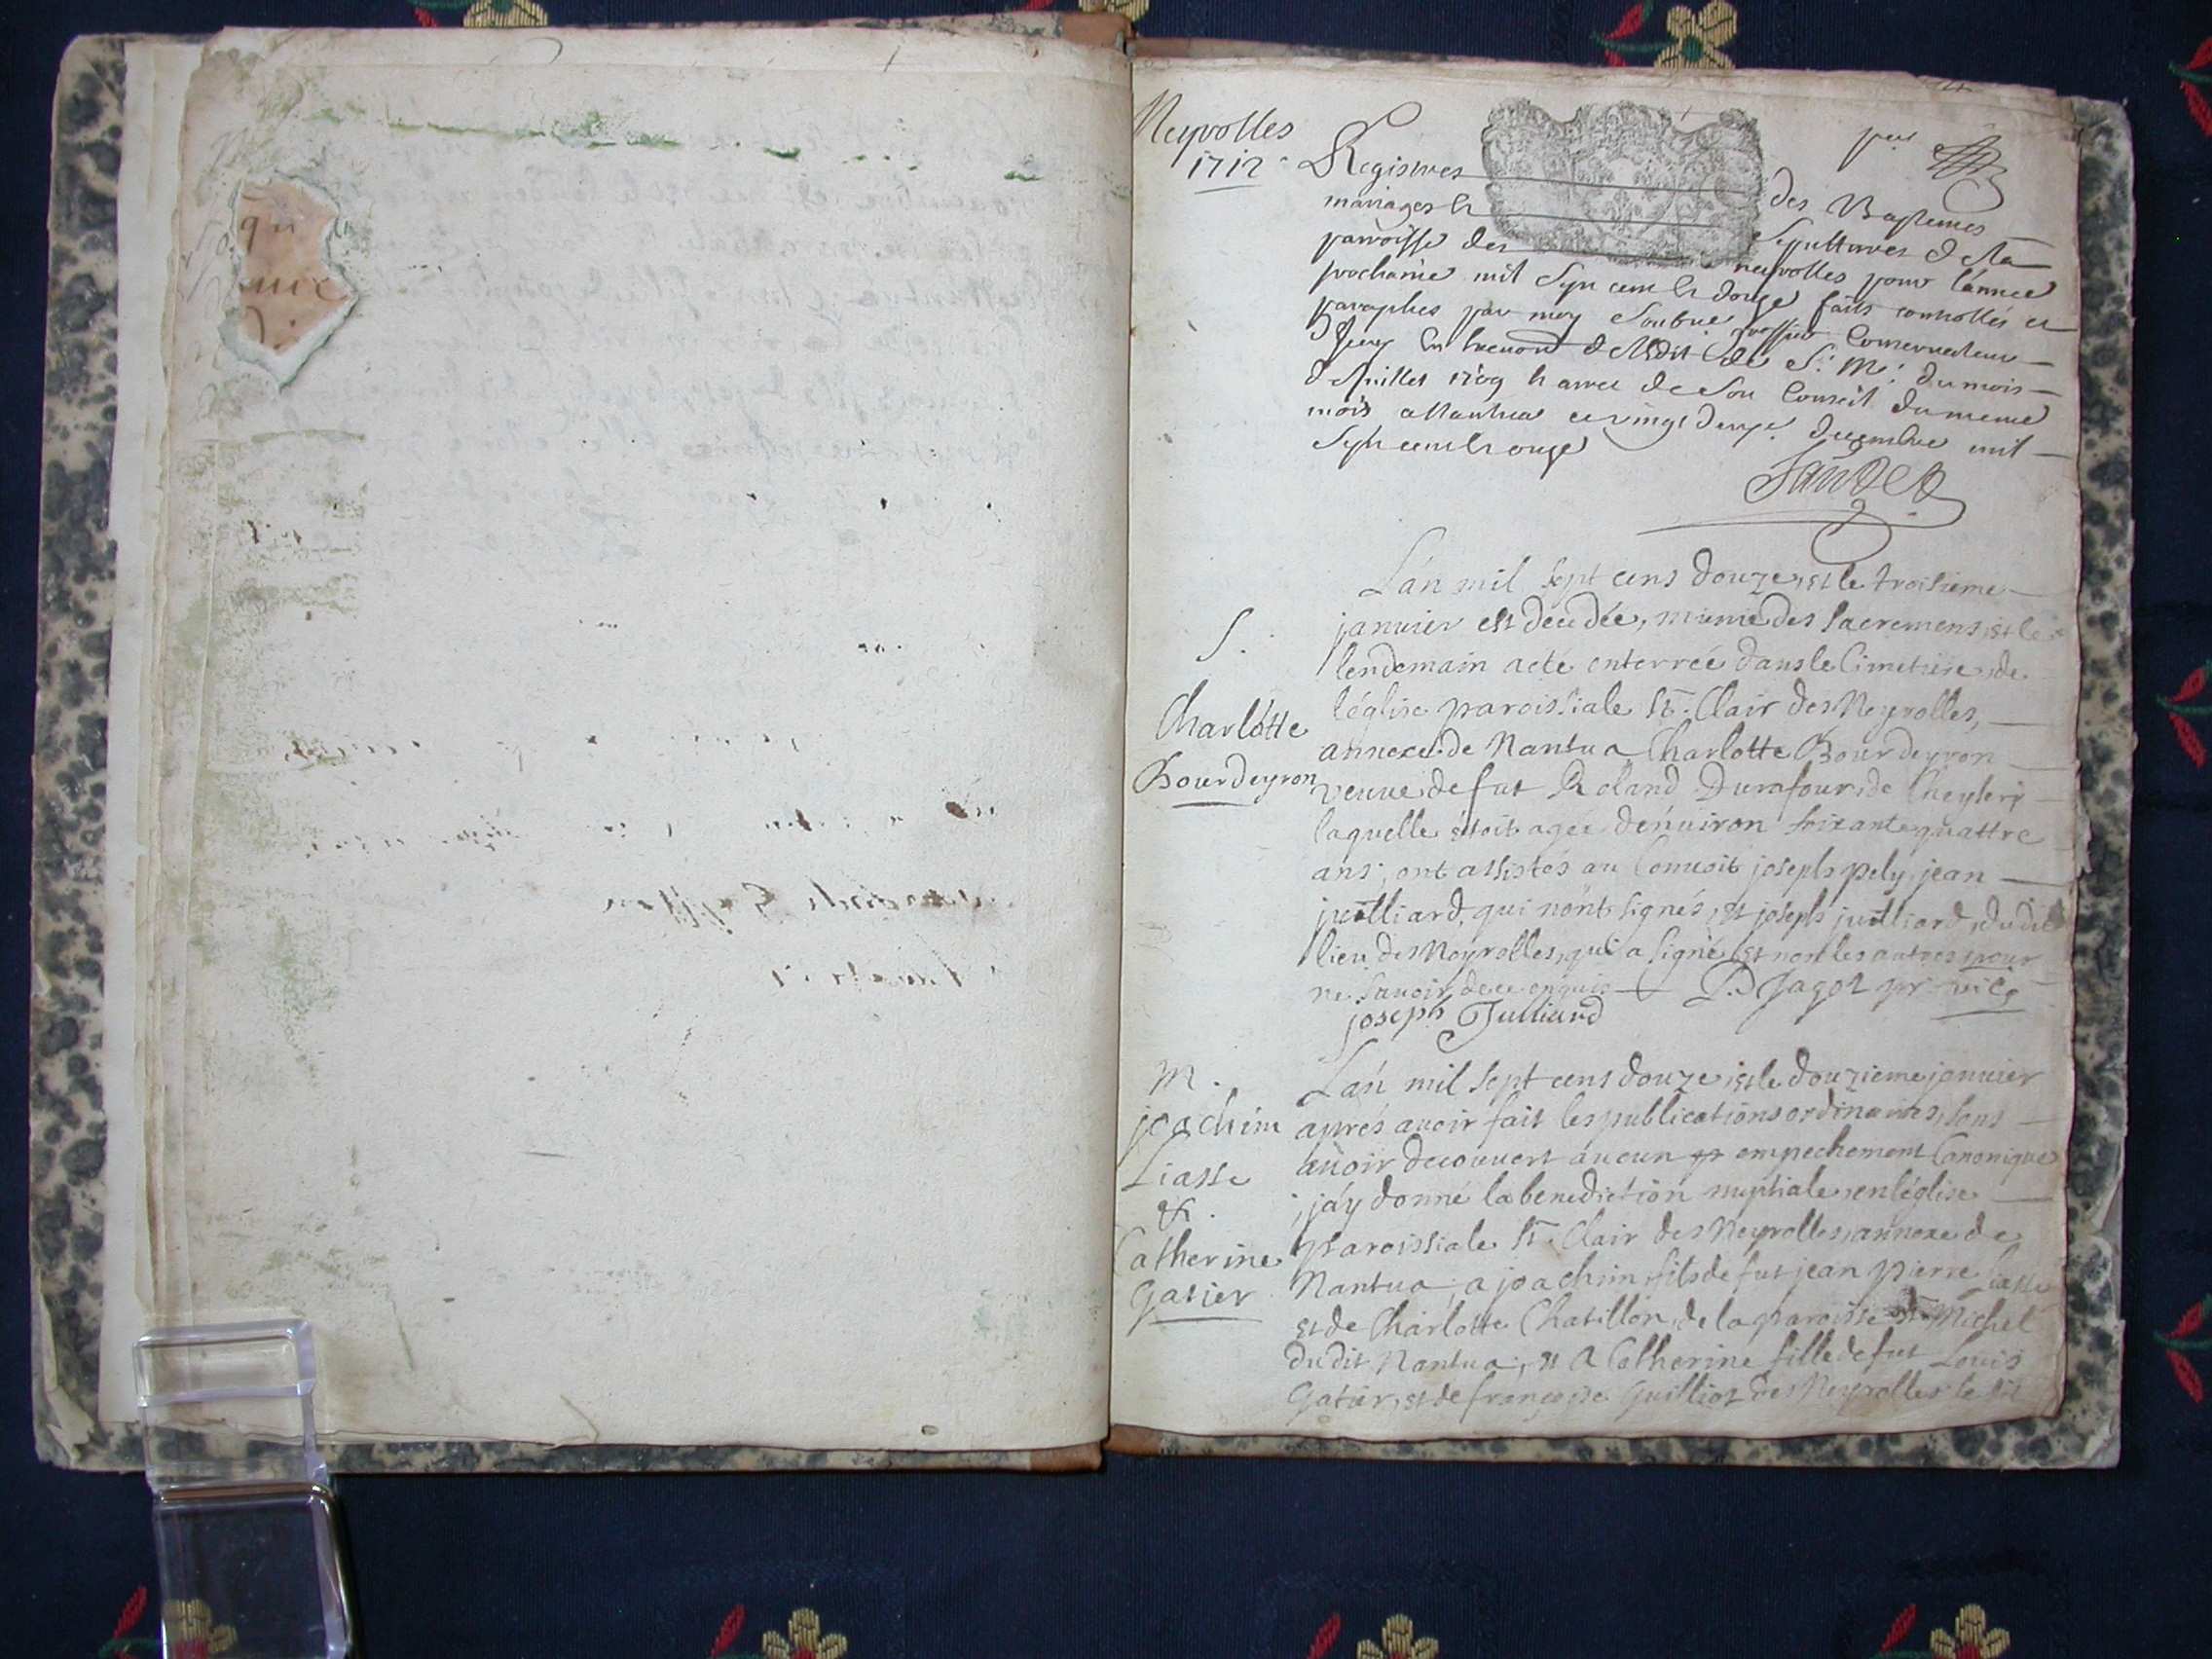 qu
Neyrolles
1712
Registres des Baptemes
mariages et Sepultures de la
parroisse des neyrolles pour l'année
prochaine mil Sept cent et douze faits controllés et
paraphes par moy Soubné greffier Conservateur
d'Iceux En execution de l'Edit de Sa Mté du mois
de Juillet 1709 et arrest de Son Conseil du meme
mois a Nantua ce vingt deuxe decembre mil
Sept cent et onze
S.
Charlotte
Bourdeyron
L'an mil sept cens douze, et le troisieme
januier est decedée, munie des sacremens, et le
lendemain a eté enterrée dans le Cimetiere, de
l'église paroissiale St. Clair des Neyrolles,
annexe de Nantua Charlotte Bourdeyron
veuue de fut Roland Durafour, de
laquelle etoit agée d'enuiron soixante quattre
ans; ont assistés au Conuoit joseph pely, jean
juilliard, qui n'ont signés, et joseph juilliard, du dit
lieu des Neyrolles, qui a signé, et non les autres pour
ne sauoir de ce enquis P. Jagot pr. vice
joseph Julliard
M.
joachim
Liasse
&.
Catherine
Gatier
L'an mil sept cens douze, et le douzieme januier
aprés auoir fait les publications ordinaires, sans
auoir decouuert aucun empechement Canonique
j'ay donné la benediction nuptiale, en l'église
paroissiale St. Clair des Neyrolles, annexe de
Nantua, a joachim, fils de fut jean pierre liasse
et de Charlotte Chatillon, de la paroisse St. Michel
du dit Nantua, et a Catherine fille de fut Louis
Gatier, et de françoise Guilliot des Neyrolles le dit